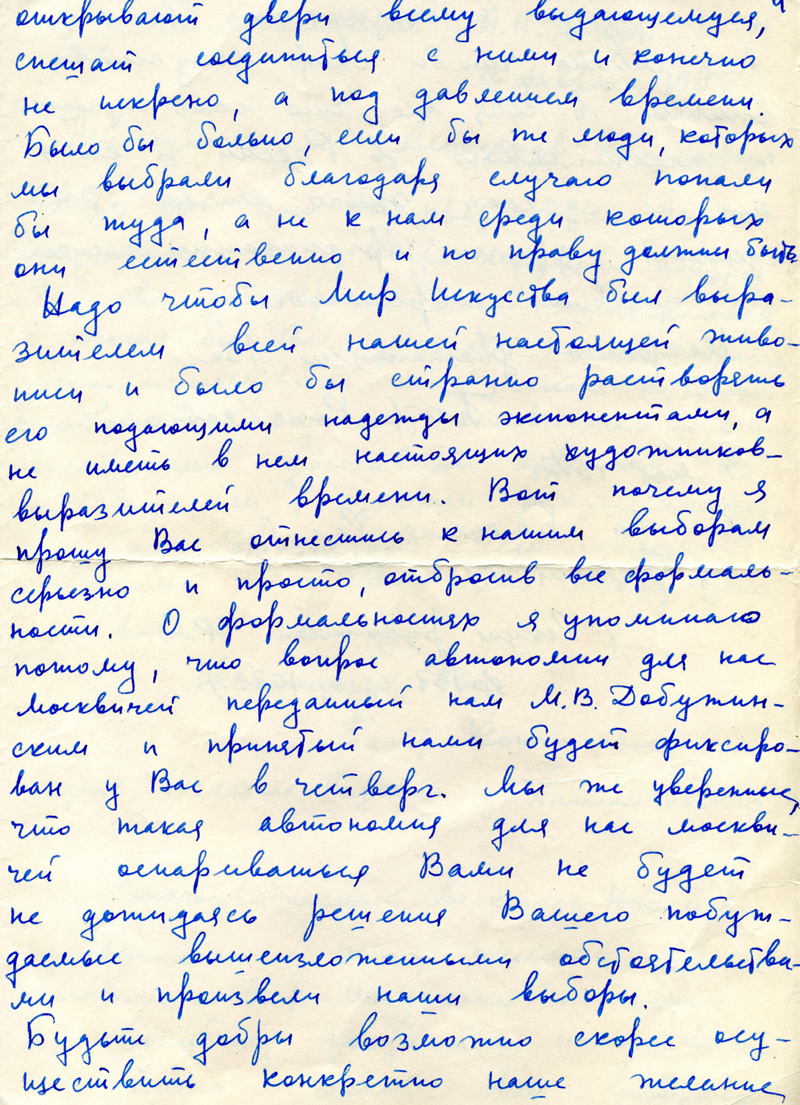 открывают двери всему выдающемуся,
спешат соединиться с ними и конечно
не искрено, а под давлением времени.
Было бы больно, если бы те люди, которых
мы выбрали благодаря случаю попали
бы туда, а не к нам среди которых
они естественно и по праву должны быть
Надо чтобы Мир Искусства был выра-
зителем всей нашей настоящей живо-
писи и было бы странно растворять
его подающими надежды экспонентами, а
не иметь в нем настоящих художников-
выразителей времени. Вот почему я
прошу Вас отнестись к нашим выборам
серьезно и просто, отбросив все формаль-
ности. О формальностях я упоминаю
потому, что вопрос автономии для нас
москвичей переданный нам М.В. Добужин-
ским и принятый нами будет фиксиро-
ван у Вас в четверг. Мы же уверенные,
что такая автономия для нас москви-
чей оспариваться Вами не будет
не дожидаясь решения Вашего побуж-
даемые вышеизложенными обстоятельства-
ми и произвели наши выборы.
Будьте добры возможно скорее осу-
ществить конкретно наше желание,